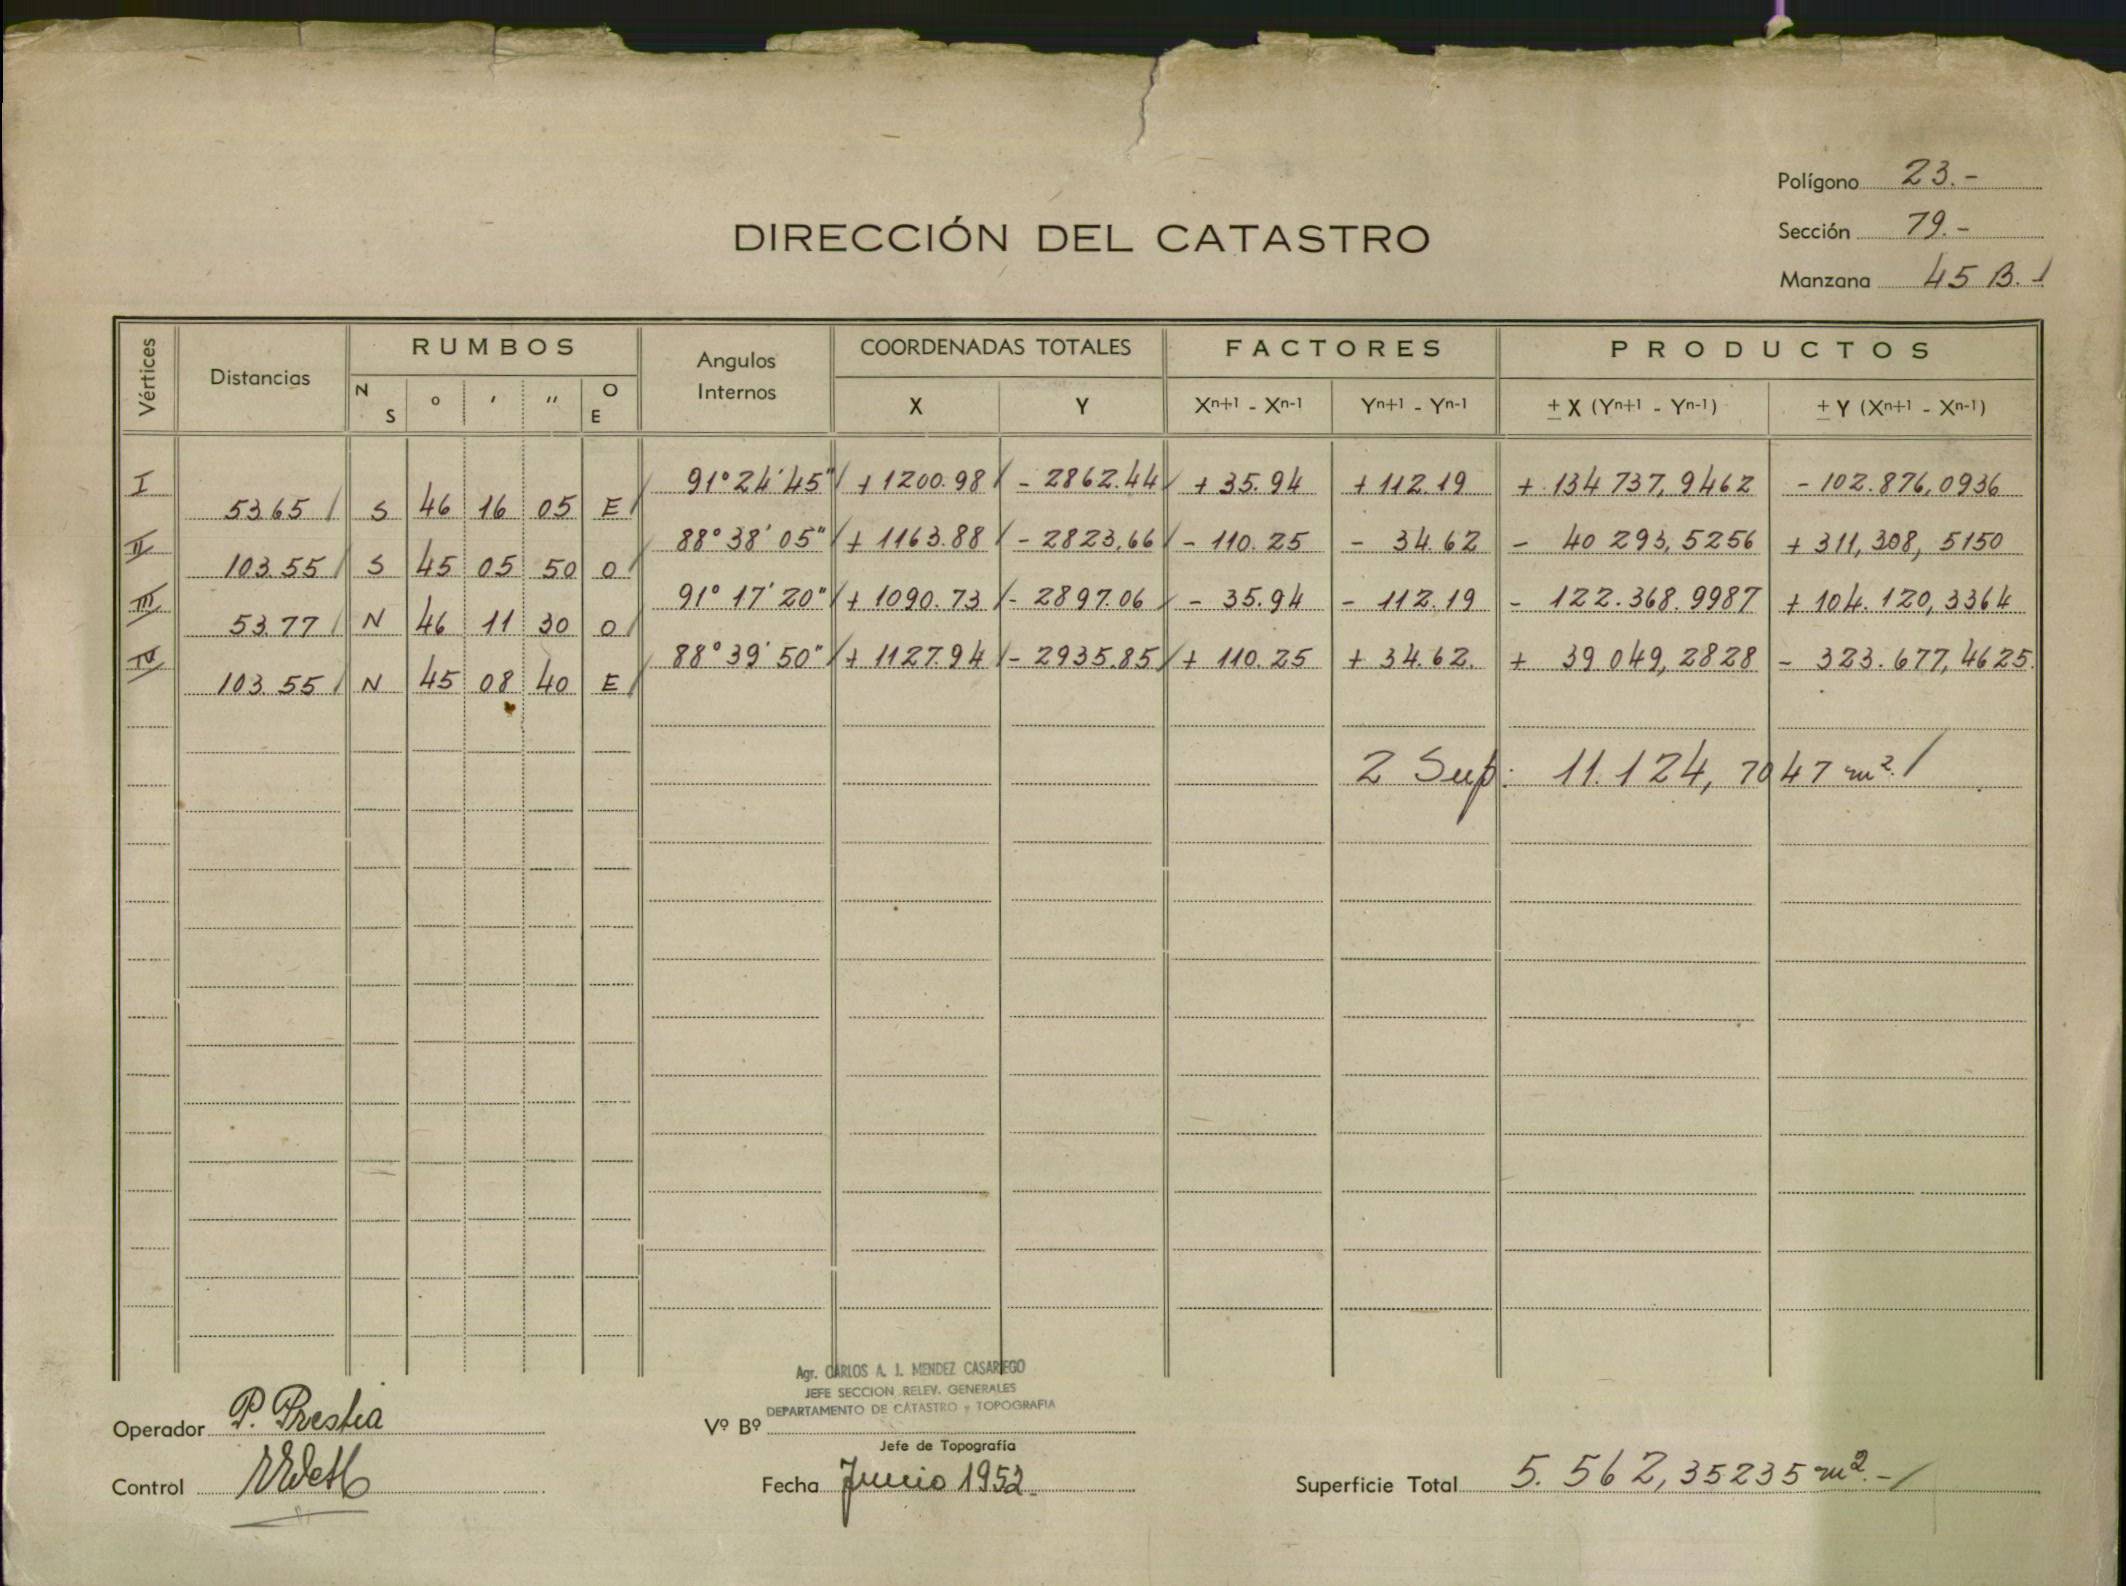 Polígono 23.-
Sección 79.-
Manzana 45 B.
DIRECCIÓN DEL CATASTRO
Vértices Distancias RUMBOS Angulos Internos COORDENADAS TOTALES FACTORES PRODUCTOS
N S ° ' '' O E X Y Xn+1 - Xn-1 Yn+1 - Yn-1 ± X (Yn+1 - Yn-1) ± Y (Xn+1 - Xn-1)
I 91° 24' 45" + 1200.98 - 2862.44 + 35.94 + 112.19 + 134 737,9462 - 102.876,0936
53.65 S 46 16 05 E
II 88° 38' 05" + 1163.88 - 2823,66 - 110.25 - 34.62 - 40 293,5256 + 311,308, 5150
103.55 S 45 05 50 O
III 91° 17' 20" + 1090.73 - 2897.06 - 35.94 - 112.19 - 122.368.9987 + 104.120,3364
53.77 N 46 11 30 O
IV 88° 39' 50" + 1127.94 - 2935.85 + 110.25 + 34.62. + 39 049,2828 - 323.677,4625.
103.55 N 45 08 40 E
2 Sup: 11.124,7047 m².
Agr. CARLOS A. J. MENDEZ CASARIEGO
JEFE SECCION RELEV. GENERALES
DEPARTAMENTO DE CATASTRO y TOPOGRAFIA
Operador P. Prestia
Vº Bº
Jefe de Topografía
Control
Fecha Junio 1952.
Superficie Total 5.562,35235 m².-